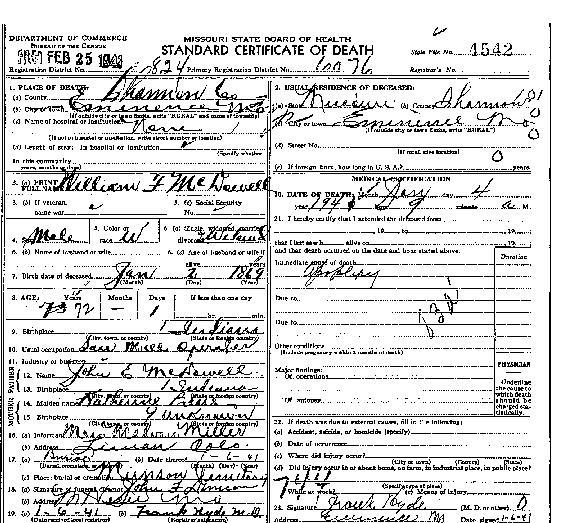 DEPARTMENT OF COMMERCE
BUREAU OF THE CENSUS
MISSOURI STATE BOARD OF HEALTH
STANDARD CERTIFICATE OF DEATH
FEB 25 1941
State File No. 4542
Registration District No. 824 Primary Registration District No. 6076 Registrar's No.
1. PLACE OF DEATH:
(a) County Shannon Co
(b) City or town Eminence Mo
(c) Name of hospital or institution:
None
(If not in hospital or institution, write street number or location)
(d) Length of stay: In hospital or institution
(Specify whether
In this community
years, months or days)
2. USUAL RESIDENCE OF DECEASED:
(a) State Missouri (b) County Shannon
(c) City or town Eminence Mo
(If outside city or town limits, write "RURAL")
(d) Street No.
(If rural, give location)
(e) If foreign born, how long in U. S. A.? 0 years.
3. (a) PRINT
FULL NAME William F McDowell
3. (b) If veteran,
name war
3. (c) Social Security
No.
4. Sex Male
5. Color or
race W
6. (a) Single, widowed, married,
divorced
6. (b) Name of husband or wife
6. (c) Age of husband or wife if
alive years
7. Birth date of deceased Jan 2 1869
(Month) (Day) (Year)
8. AGE: Years Months Days If less than one day
72 - 1 hr. min.
9. Birthplace Indiana
(City, town, or county) (State or foreign country)
10. Usual occupation Saw Mill Operator
11. Industry or business
12. Name John E McDowell
13. Birthplace Indiana
14. Maiden name Katherine
15. Birthplace Unknown
16. (a) Informant Miller
(b) Address Limon Colo.
17. (a) Burial 1-6-41
(c) Place: burial or cremation Munson Cemetery
18. (a) Signature of funeral director
(b) Address
19. (a) 1-6-41 (b) Frank Hyde M.D.
MEDICAL CERTIFICATION
20. DATE OF DEATH: Month Jan day 4
year 1941 hour 9 minute a M.
21. I hereby certify that I attended the deceased from
19 to 19
that I last saw h alive on 19
and that death occurred on the date and hour stated above.
Duration
Immediate cause of death
Due to
Due to
Other conditions
(Include pregnancy within 3 months of death)
Major findings:
Of operations
Of autopsy
PHYSICIAN
Underline
the cause to
which death
should be
charged sta-
tistically.
22. If death was due to external causes, fill in the following:
(a) Accident, suicide, or homicide (specify)
(b) Date of occurrence
(c) Where did injury occur?
(d) Did injury occur in or about home, on farm, in industrial place, in public place?
(Specify type of place)
While at work? (e) Means of injury
23. Signature Frank Hyde (M. D. or other) D
Address Eminence Mo Date signed 1-6-41